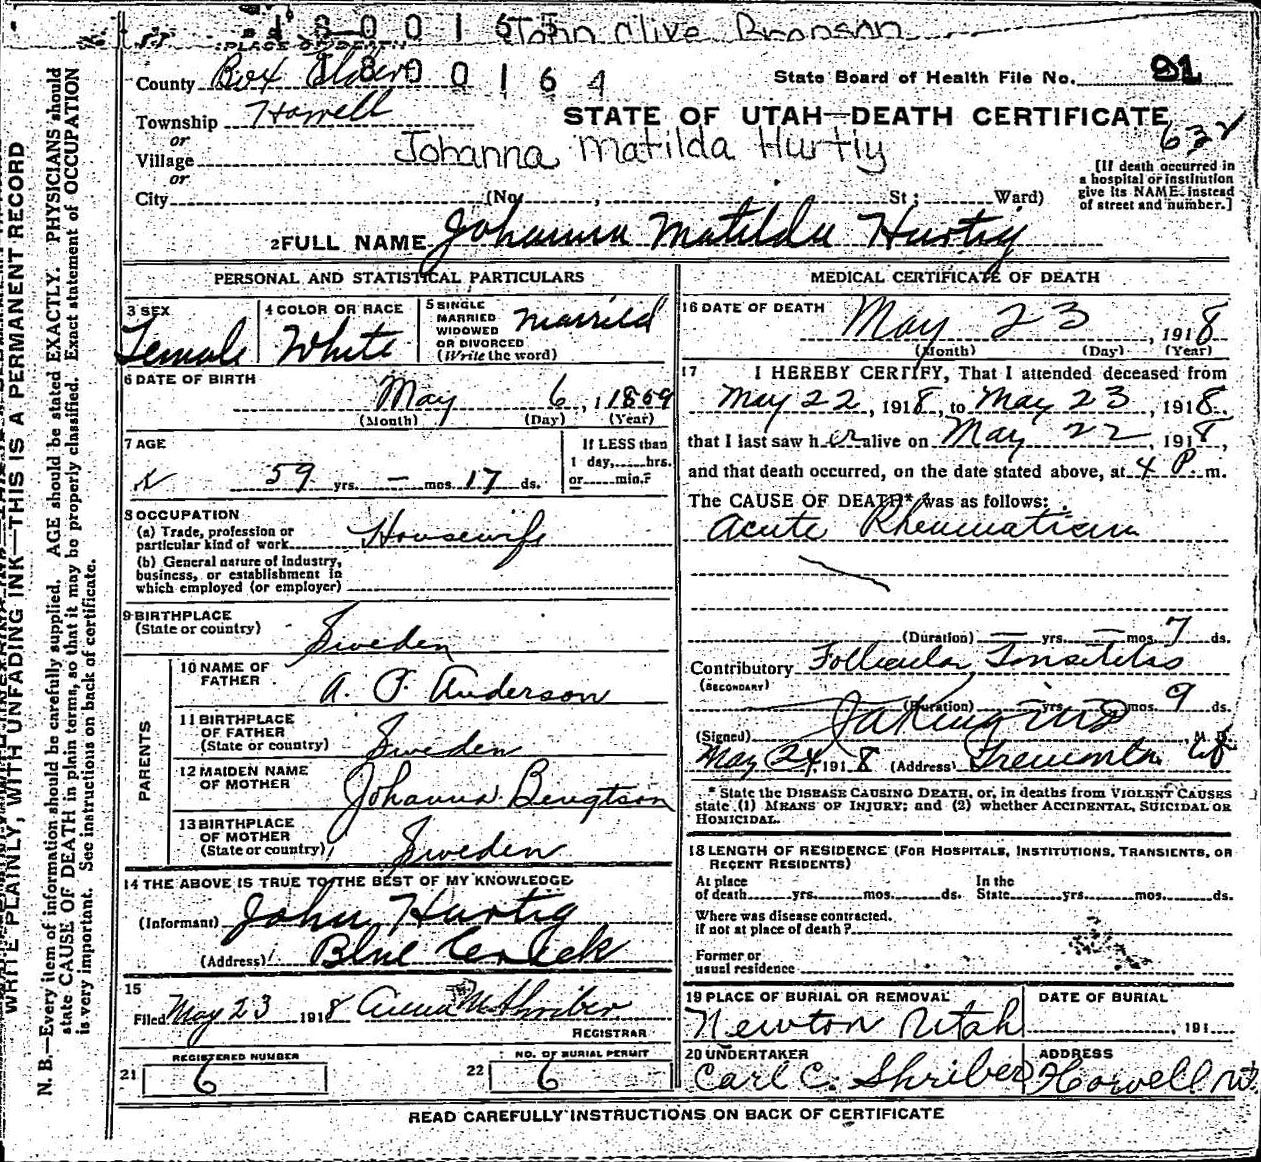 1800165 John Olive Bronson
PLACE OF DEATH
County Box Elder 1800164
State Board of Health File No. 91
Township Howell
STATE OF UTAH—DEATH CERTIFICATE
or
632
Village Johanna Matilda Hurtig
or
[If death occurred in
a hospital or institution
give its NAME instead
of street and number.]
City (No. , St ; Ward)
2 FULL NAME Johanna Matilda Hurtig
PERSONAL AND STATISTICAL PARTICULARS
3 SEX
Female
4 COLOR OR RACE
White
5 SINGLE
MARRIED
WIDOWED
OR DIVORCED
(Write the word)
Married
6 DATE OF BIRTH
May 6, 1859
(Month) (Day) (Year)
7 AGE
59 yrs. — mos. 17 ds.
If LESS than
1 day, hrs.
or min.?
8 OCCUPATION
(a) Trade, profession or
particular kind of work Housewife
(b) General nature of industry,
business, or establishment in
which employed (or employer)
9 BIRTHPLACE
(State or country) Sweden
PARENTS
10 NAME OF
FATHER A. P. Anderson
11 BIRTHPLACE
OF FATHER
(State or country) Sweden
12 MAIDEN NAME
OF MOTHER Johanna Bengtson
13 BIRTHPLACE
OF MOTHER
(State or country) Sweden
14 THE ABOVE IS TRUE TO THE BEST OF MY KNOWLEDGE
(Informant) John Hurtig
(Address) Blue Creek
15
Filed May 23 1918 Anna M Shriber
REGISTRAR
21 REGISTERED NUMBER 6
22 NO. OF BURIAL PERMIT 6
MEDICAL CERTIFICATE OF DEATH
16 DATE OF DEATH
May 23, 1918
(Month) (Day) (Year)
17 I HEREBY CERTIFY, That I attended deceased from
May 22, 1918, to May 23, 1918.
that I last saw her alive on May 22, 1918,
and that death occurred, on the date stated above, at 4 P. m.
The CAUSE OF DEATH* was as follows:
Acute Rheumatism
(Duration) — yrs. — mos. 7 ds.
Contributory Follicular Tonsilitis
(SECONDARY)
(Duration) — yrs. mos. 9 ds.
(Signed) , M. D.
May 24, 1918 (Address) Tremonton Ut
* State the DISEASE CAUSING DEATH, or, in deaths from VIOLENT CAUSES
state (1) MEANS OF INJURY; and (2) whether ACCIDENTAL, SUICIDAL OR
HOMICIDAL.
18 LENGTH OF RESIDENCE (FOR HOSPITALS, INSTITUTIONS, TRANSIENTS, OR
RECENT RESIDENTS)
At place
of death yrs. mos. ds.
In the
State yrs. mos. ds.
Where was disease contracted.
if not at place of death?
Former or
usual residence
19 PLACE OF BURIAL OR REMOVAL
Newton Utah
DATE OF BURIAL
, 191
20 UNDERTAKER
Carl C. Shriber
ADDRESS
Howell Ut.
READ CAREFULLY INSTRUCTIONS ON BACK OF CERTIFICATE
WRITE PLAINLY, WITH UNFADING INK—THIS IS A PERMANENT RECORD
N. B.—Every item of information should be carefully supplied. AGE should be stated EXACTLY. PHYSICIANS should
state CAUSE OF DEATH in plain terms, so that it may be properly classified. Exact statement of OCCUPATION
is very important. See instructions on back of certificate.